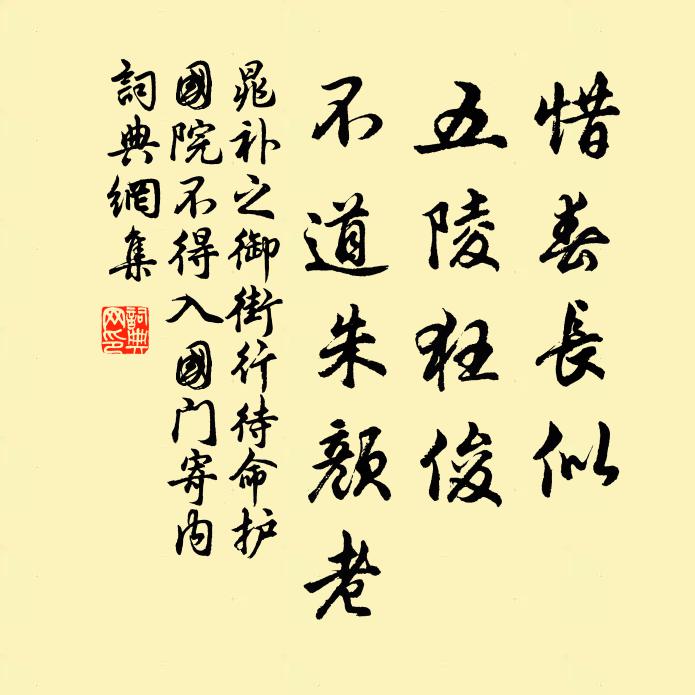 惜春長似
五陵狂俊
不道朱顏老
晁补之御街行待命护
國院不得入國门寄内
詞典網集
詞典
网印